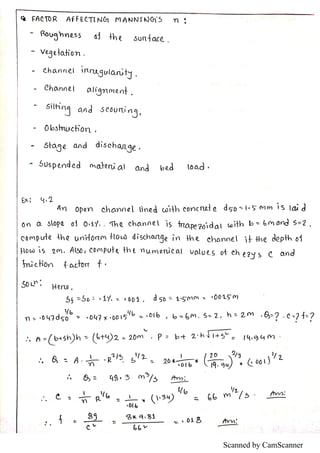 FACTOR AFFECTING MANNING'S n :
- Roughness of the surface.
- Vegetation.
- channel irregularity.
- Channel alignment.
- Silting and scouring.
- Obstruction.
- Stage and discharge.
- Suspended material and bed load.
Ex: 4.2
An open channel lined with concrete d50 = 1.5 mm is laid
on a slope of 0.1%. The channel is trapezoidal with b = 6m and S=2.
compute the uniform flow discharge in the channel if the depth of
flow is 2m. Also, compute the numerical values of chezys C and
friction factor f.
Solⁿ: Here,
Sf = So = .1% = .001, d50 = 1.5mm = .0015m
n = .047d50^1/6 = .047 × .0015^1/6 = .016, b = 6m, S = 2, h = 2m, Q=? C=? f=?
∴ A = (b+sh)h = (6+4)2 = 20m², P = b+ 2·h√1+s² = 14.94m.
∴ Q = A · 1/n · R^2/3 · S^1/2 = 20 × 1/.016 × (20/14.94)^2/3 × (.001)^1/2
∴ Q = 48.3 m³/s Ans:
∴ C = 1/n R^1/6 = 1/.016 × (1.34)^1/6 = 66 m^1/2/s. Ans:
∴ f = 8g/C² = 8×9.81/66² = .018 Ans:
Scanned by CamScanner